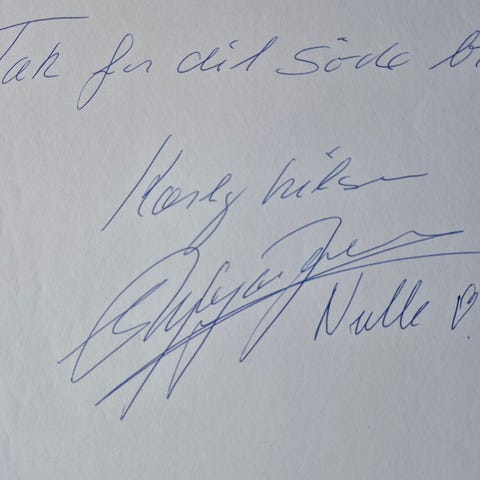 Tak for dit söde b
Kærlig hilsen
Nulle ♡